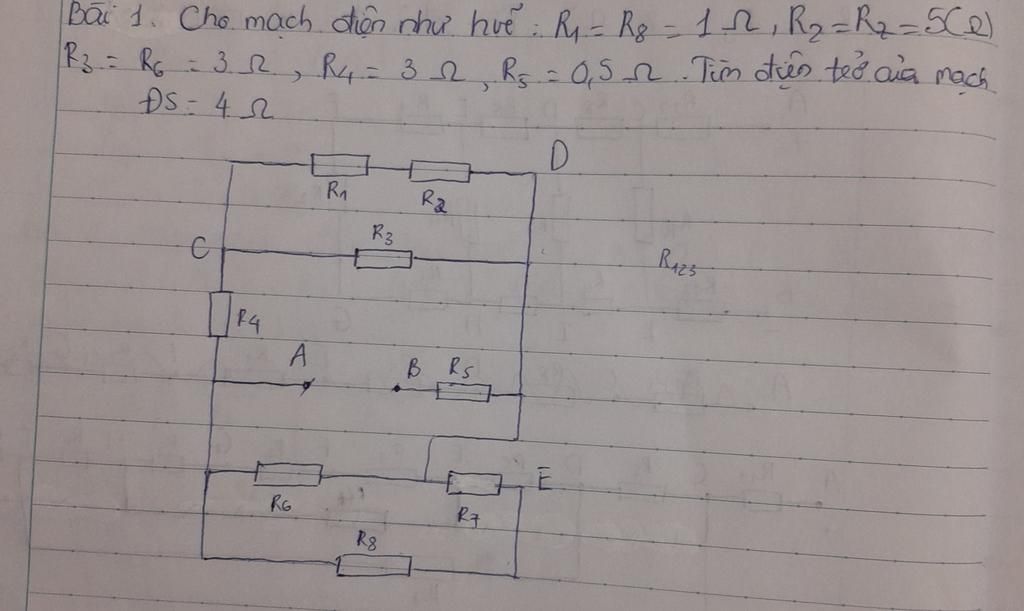 Bài 1. Cho mạch điện như huể : R1 = R8 = 1 Ω, R2 = R7 = 5(Ω)
R3 = R6 = 3 Ω, R4 = 3 Ω, R5 = 0,5 Ω. Tìm điện trở của mạch
ĐS = 4 Ω
D
R1
R2
C
R3
R123
R4
A
B
R5
E
R6
R7
R8